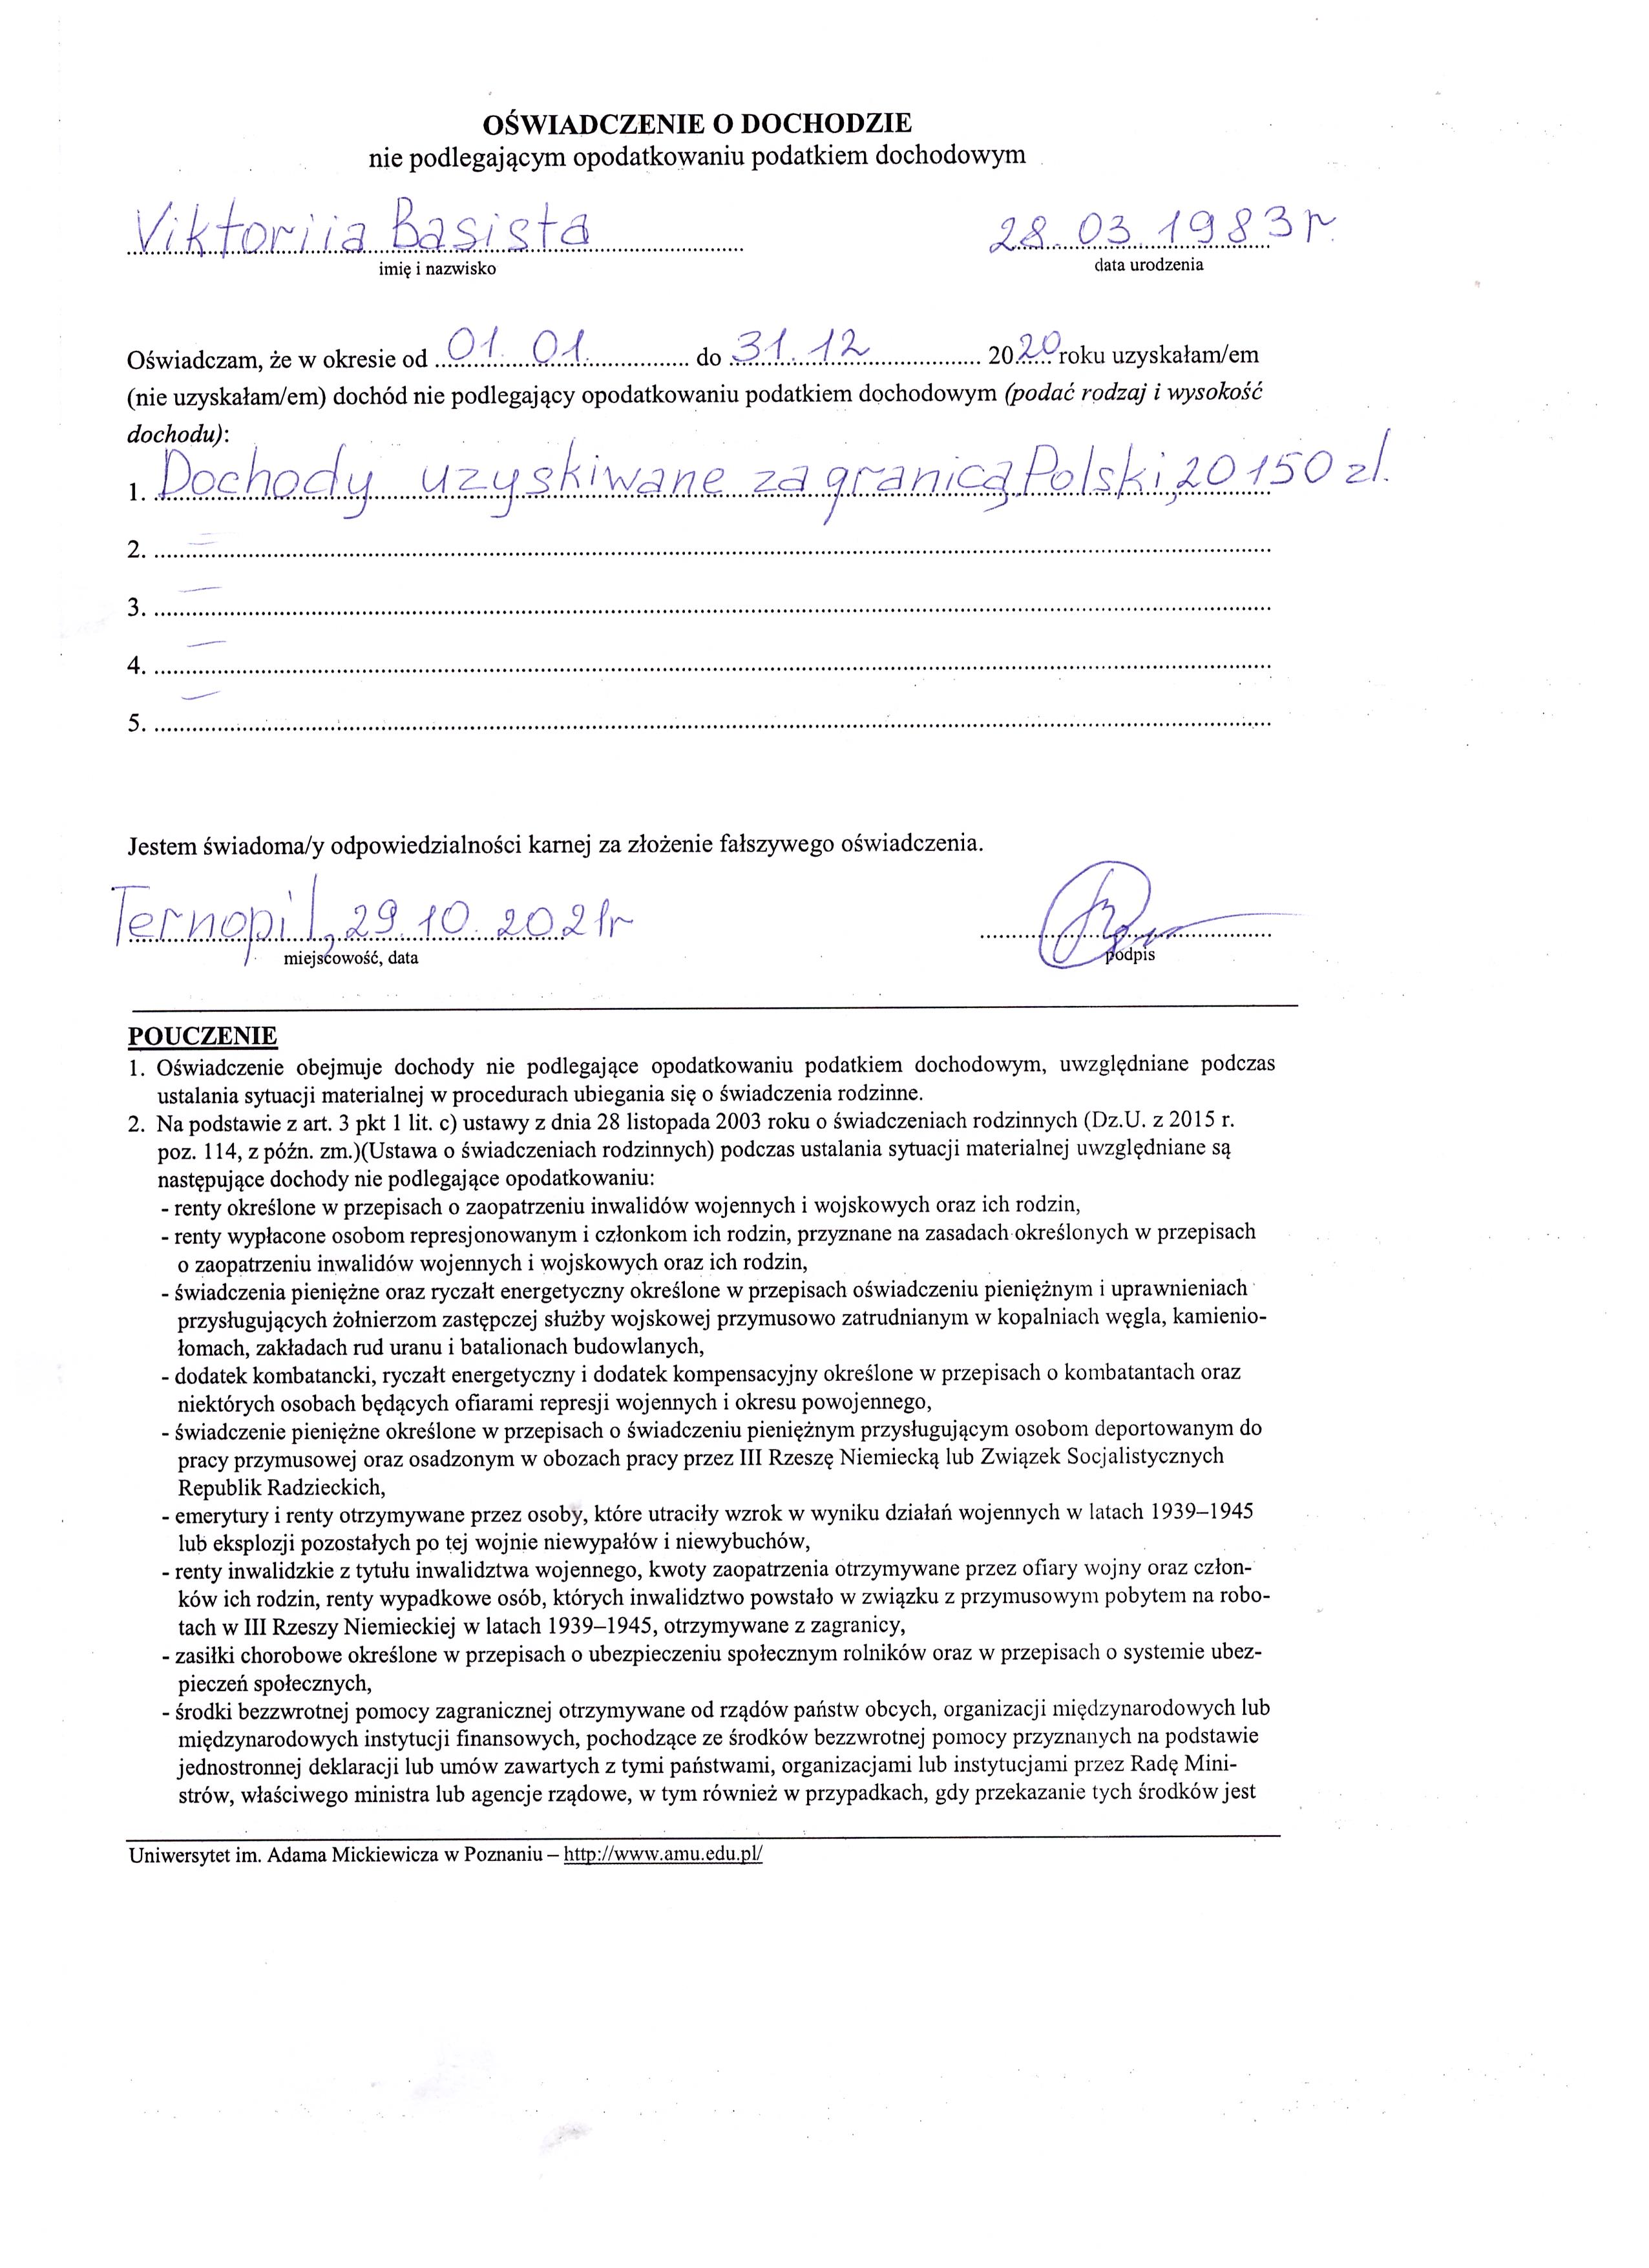 OŚWIADCZENIE O DOCHODZIE
nie podlegającym opodatkowaniu podatkiem dochodowym
Viktoriia Basista 28.03.1983 r.
imię i nazwisko data urodzenia
Oświadczam, że w okresie od 01. 01. do 31. 12 2020 roku uzyskałam/em
(nie uzyskałam/em) dochód nie podlegający opodatkowaniu podatkiem dochodowym (podać rodzaj i wysokość
dochodu):
1. Dochody uzyskiwane za granicą Polski, 20150 zl.
2.
3.
4.
5.
Jestem świadoma/y odpowiedzialności karnej za złożenie fałszywego oświadczenia.
Ternopil, 29.10.2021r
miejscowość, data podpis
POUCZENIE
1. Oświadczenie obejmuje dochody nie podlegające opodatkowaniu podatkiem dochodowym, uwzględniane podczas
ustalania sytuacji materialnej w procedurach ubiegania się o świadczenia rodzinne.
2. Na podstawie z art. 3 pkt 1 lit. c) ustawy z dnia 28 listopada 2003 roku o świadczeniach rodzinnych (Dz.U. z 2015 r.
poz. 114, z późn. zm.)(Ustawa o świadczeniach rodzinnych) podczas ustalania sytuacji materialnej uwzględniane są
następujące dochody nie podlegające opodatkowaniu:
- renty określone w przepisach o zaopatrzeniu inwalidów wojennych i wojskowych oraz ich rodzin,
- renty wypłacone osobom represjonowanym i członkom ich rodzin, przyznane na zasadach określonych w przepisach
o zaopatrzeniu inwalidów wojennych i wojskowych oraz ich rodzin,
- świadczenia pieniężne oraz ryczałt energetyczny określone w przepisach oświadczeniu pieniężnym i uprawnieniach
przysługujących żołnierzom zastępczej służby wojskowej przymusowo zatrudnianym w kopalniach węgla, kamienio-
łomach, zakładach rud uranu i batalionach budowlanych,
- dodatek kombatancki, ryczałt energetyczny i dodatek kompensacyjny określone w przepisach o kombatantach oraz
niektórych osobach będących ofiarami represji wojennych i okresu powojennego,
- świadczenie pieniężne określone w przepisach o świadczeniu pieniężnym przysługującym osobom deportowanym do
pracy przymusowej oraz osadzonym w obozach pracy przez III Rzeszę Niemiecką lub Związek Socjalistycznych
Republik Radzieckich,
- emerytury i renty otrzymywane przez osoby, które utraciły wzrok w wyniku działań wojennych w latach 1939–1945
lub eksplozji pozostałych po tej wojnie niewypałów i niewybuchów,
- renty inwalidzkie z tytułu inwalidztwa wojennego, kwoty zaopatrzenia otrzymywane przez ofiary wojny oraz człon-
ków ich rodzin, renty wypadkowe osób, których inwalidztwo powstało w związku z przymusowym pobytem na robo-
tach w III Rzeszy Niemieckiej w latach 1939–1945, otrzymywane z zagranicy,
- zasiłki chorobowe określone w przepisach o ubezpieczeniu społecznym rolników oraz w przepisach o systemie ubez-
pieczeń społecznych,
- środki bezzwrotnej pomocy zagranicznej otrzymywane od rządów państw obcych, organizacji międzynarodowych lub
międzynarodowych instytucji finansowych, pochodzące ze środków bezzwrotnej pomocy przyznanych na podstawie
jednostronnej deklaracji lub umów zawartych z tymi państwami, organizacjami lub instytucjami przez Radę Mini-
strów, właściwego ministra lub agencje rządowe, w tym również w przypadkach, gdy przekazanie tych środków jest
Uniwersytet im. Adama Mickiewicza w Poznaniu – http://www.amu.edu.pl/